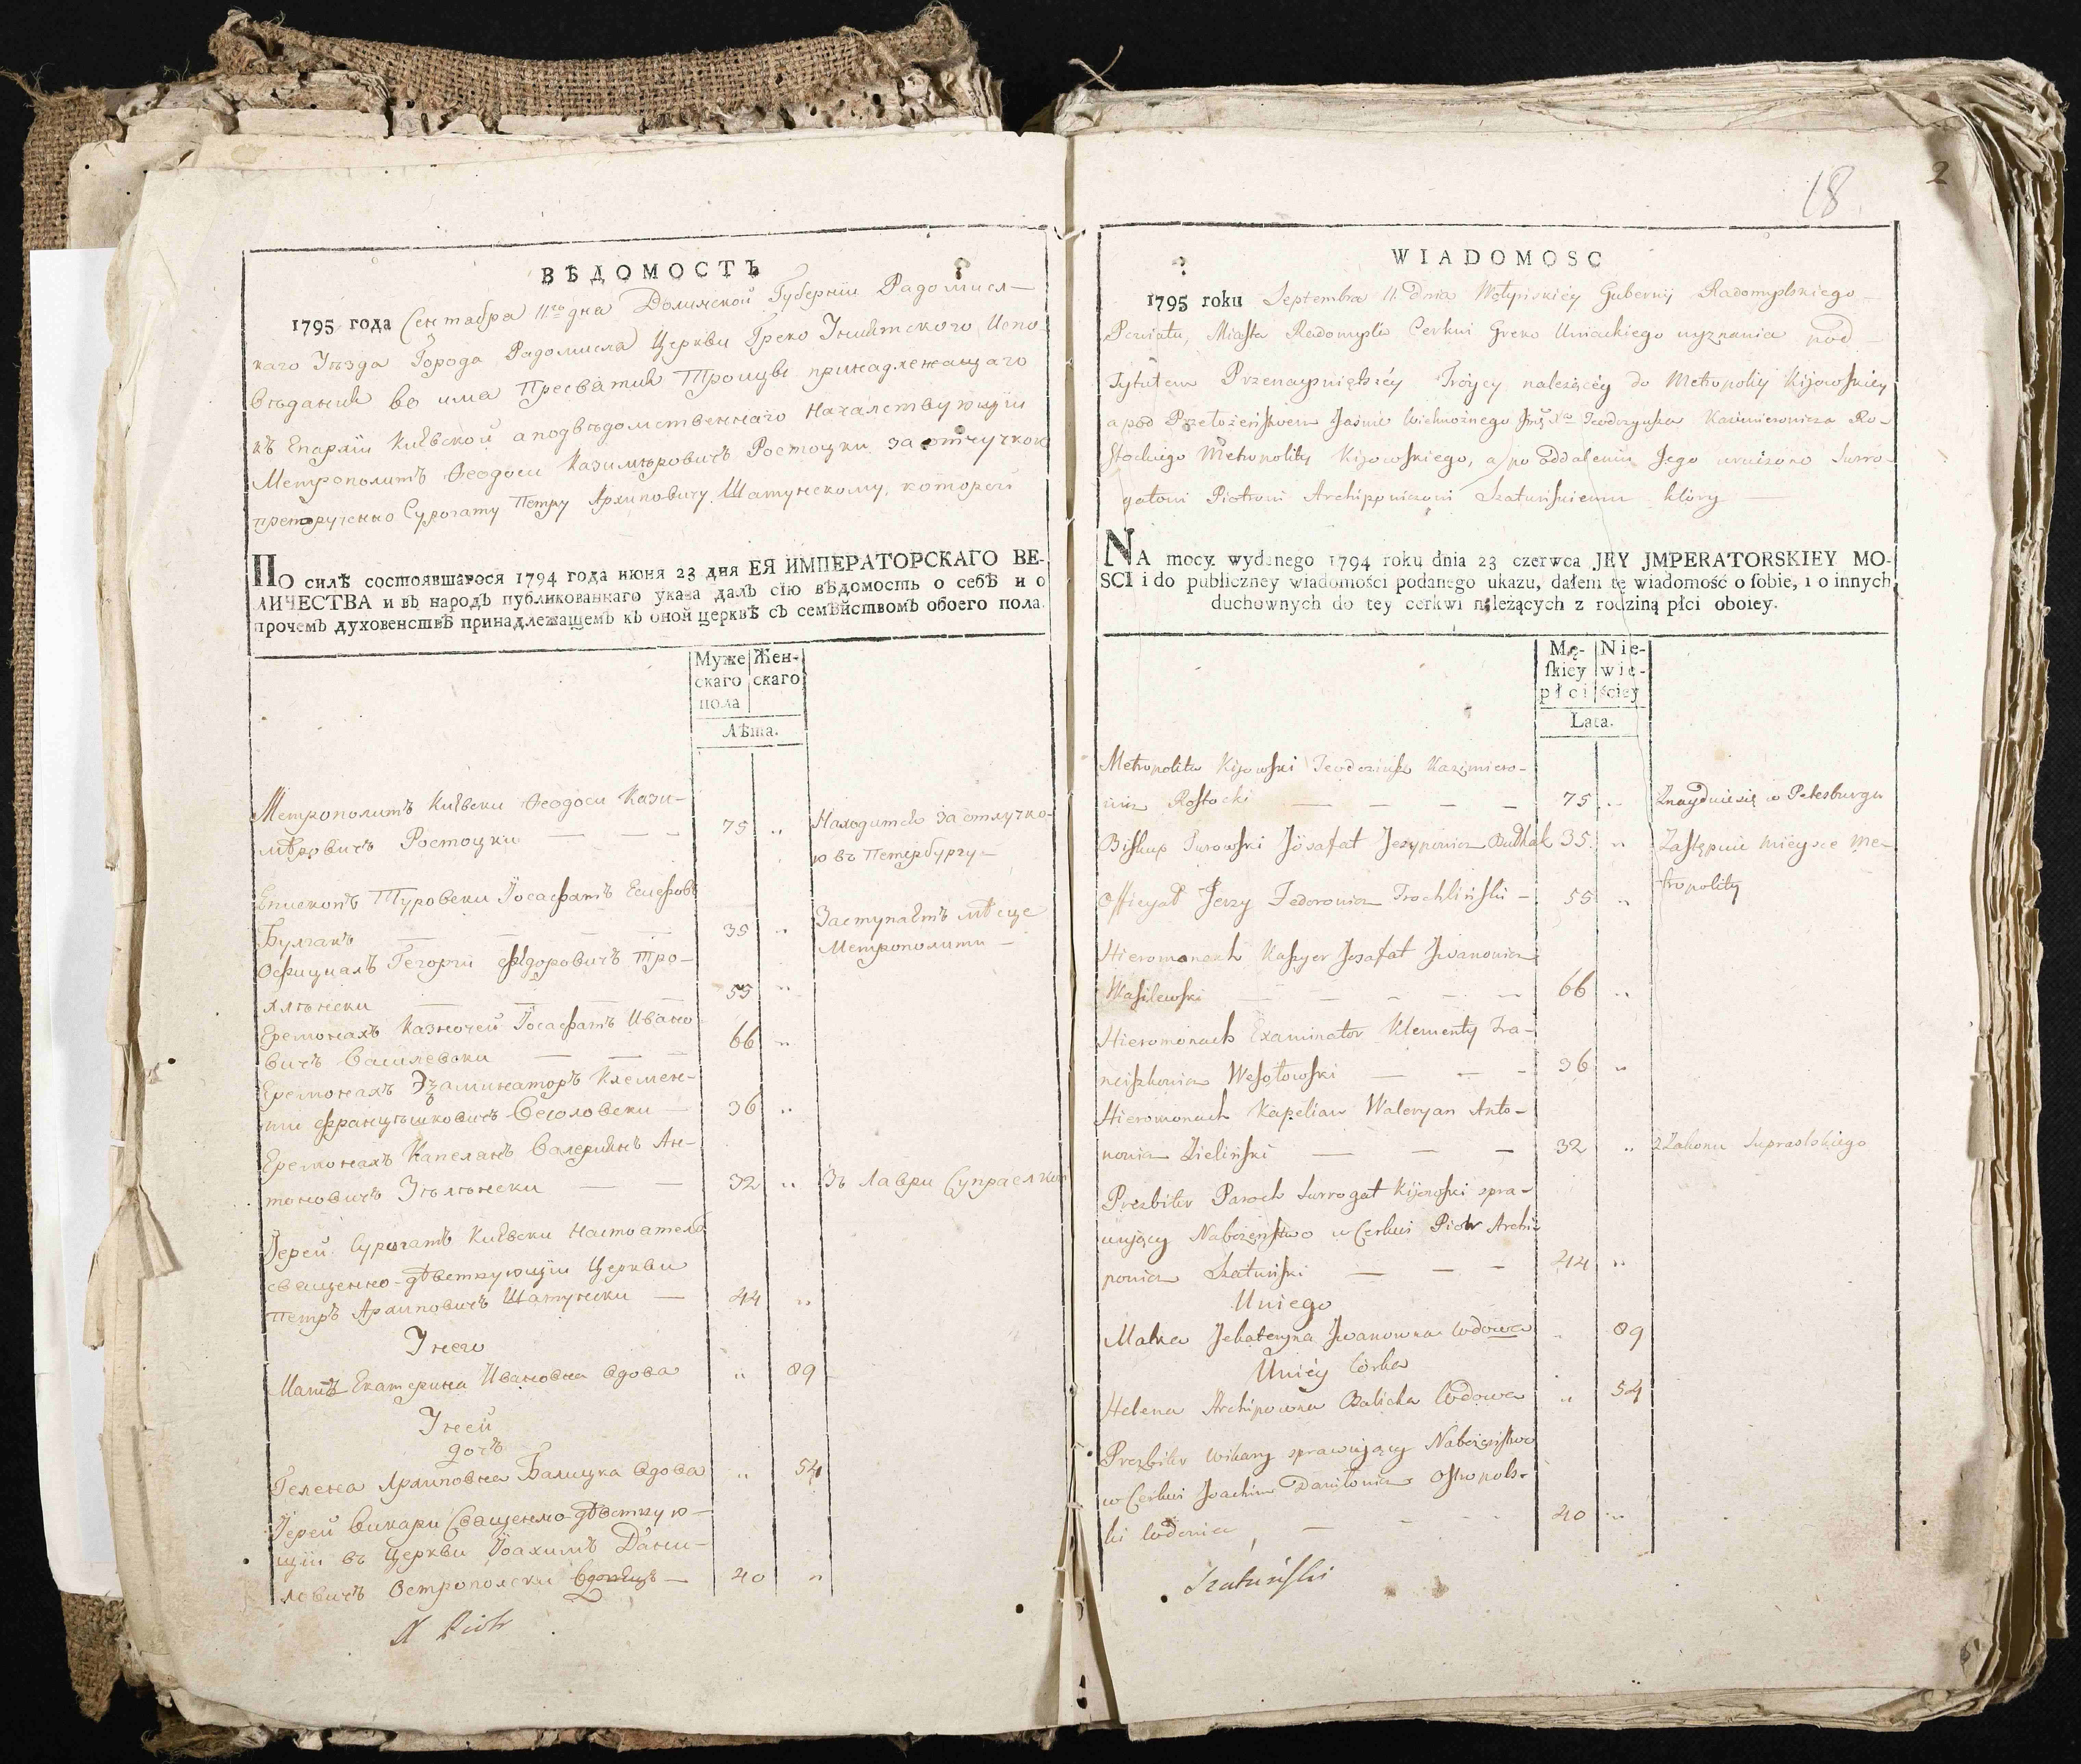 ВѢДОМОСТЬ
1795 года Сентабра 11го дна Волинской Губернїи Радомисл-
каго Уѣзда Города Радомисля Церкви Греко Униятского Испо
вѣданий во има Пресватия Троици принадлежащаго
къ Епархїи Киевской а подвѣдомственнаго Началствующїи
Метрополитъ Феодоси Казимѣровичъ Ростоцки за отлучкою
препоручено Сурогату Петру Архиповичу Шатунскому, которои
ПО силѣ состоявшагося 1794 года июня 23 дня ЕЯ ИМПЕРАТОРСКАГО ВЕ-
ЛИЧЕСТВА и въ народъ публикованнаго указа далъ сїю вѣдомость о себѣ и о
прочемъ духовенствѣ принадлежащемъ къ оной церквѣ съ семѣйствомъ обоего пола.
Муже Жен-
скаго скаго
пола
Лѣта.
Метрополитъ Киевски Феодоси Кази-
мѣровичъ Ростоцки — — — 75 „ Находится За отлучко-
ю въ Петербургу-
Епископъ Туровски Иосафатъ Есиповъ
Булгакъ — — — — 35 „ Заступаетъ мѣсце
Метрополити —
Официалъ Гегоргии Фѣдоровичъ Тро-
хлѣнски — — — — 55 „
Еремонахъ Казночей Иосафатъ Ивано
вичъ Василевски — — — 66 „
Еремонахъ Эзаминаторъ Клемен-
ти Францѣшковичъ Весоловски — 36 „
Еремонахъ Капеланъ Валериянъ Ан-
тоновичъ Зѣлѣнски — — 32 „ Зъ Лаври Супраслкой
Иерей Сурогатъ Киевски Настоателъ
священно-дѣвствующїи Церкви
Петръ Архиповичъ Шатунски — 44 „
У него
Мать Екатерина Ивановна вдова „ 89
У ней
дочъ
Гелена Архиповна Балицка вдова „ 54
Иерей Викари Священно-дѣвствую-
щїи въ Церкви Иоахимъ Дани-
ловичъ Остропольски Вдовецъ — 40 „
X Piotr
18
2
WIADOMOSC
1795 roku Septembra 11. Dnia Wołyńskiey Gubernij Radomyslskiego
Powiatu, Miasta Radomysla Cerkwi Greko Uniackiego wyznania pod
Tytułem Przenayświętszéy Tróycy, należącéy do Metropolij Kijowskiey
a pod Przełożeństwem Jaśnie Wielmożnego Teodozyusza Kazimierowicza Ro-
stockiego Metropolity Kijowskiego, a po oddaleniu Jego Surro-
gatowi Piotrowi Archippowiczowi Szatuńskiemu który
NA mocy wydanego 1794 roku dnia 23 czerwca JEY JMPERATORSKIEY MO-
SCI i do publiczney wiadomości podanego ukazu, dałem tę wiadomość o ſobie, i o innych
duchownych do tey cerkwi należących z rodziną płci oboiey.
Mę- Nie-
ſkiey wie-
płci ściey
Lata.
Metropolita Kijowski Teodoziusz Kazimiero-
wicz Rostocki — — — — 75 „ Znayduie się w Petesburgu
Biskup Turowski Józafat Jezypowicz Bułhak 35. „ Zastępuie mieysce Me-
tropolity
Officyał Jerzy Fedorowicz Trochliński — 55 „
Hieromonach Kasyer Jozafat Jwanowicz
Wasilewski — — — — 66 „
Hieromonach Examinator Klementy Fra-
nciszkowicz Wesołowski — — — 36 „
Hieromonach Kapelian Waleryan Anto-
nowicz Zieliński — — — 32 „ z Zakonu Supraslskiego
Prezbiter Paroch Surrogat Kijowski spra-
wujący Nabożeństwo w Cerkwi Piotr Archi
powicz Szatuński — — — 44 „
U niego
Matka Jekateryna Jwanowna wdowa „ 89
U niéy Córka
Helena Archipowna Balicka Wdowa „ 54
Prezbiter Wikary sprawujący Nabożeństwo
w Cerkwi Joachim Daniłowicz Ostropols-
ki Wdowiec — — — 40 „
Szatuński